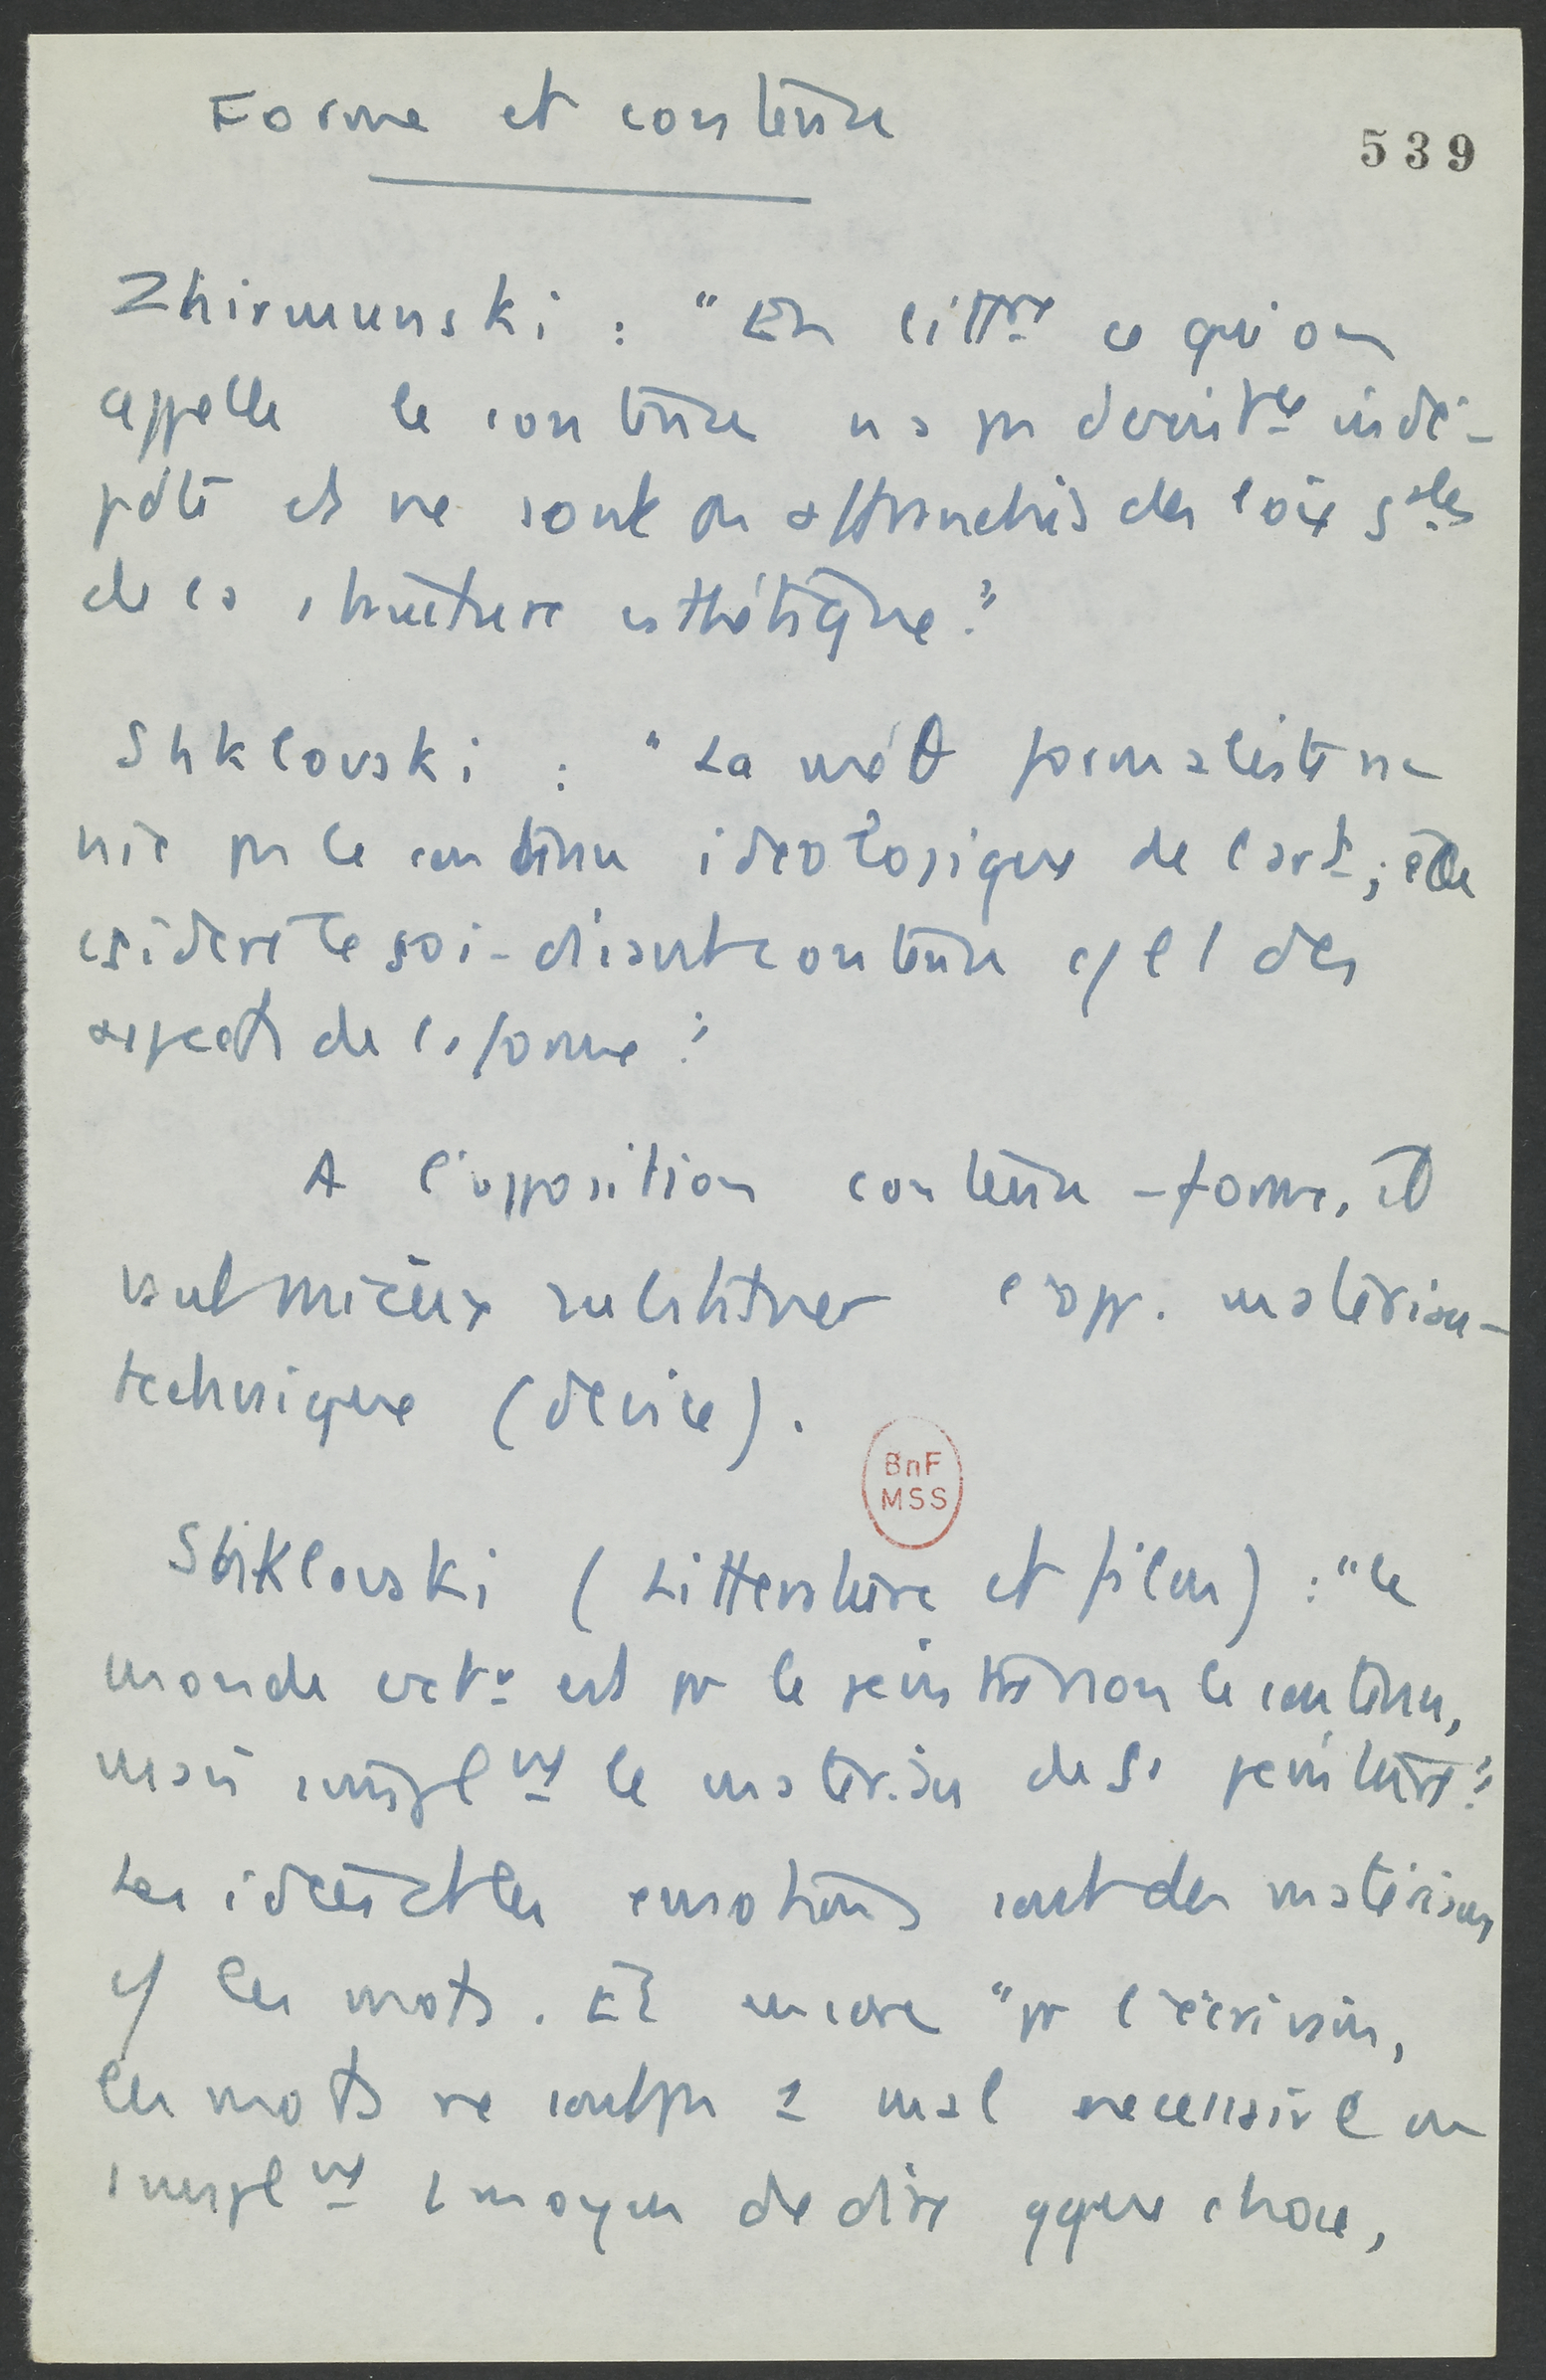 Forme et contenu
539
Zhirmunski : "En littre ce qu'on
appelle le contenu n'a pas d'exist^ce indé-
pdte et ne sont pas affranchis des lois gales
de la structure esthétique."
Shklovski : "La méth formaliste ne
nie pas le contenu idéologique de l'art ; elle
csidère le soi-disant contenu c/ e 1 des
aspects de la forme."
A l'opposition contenu - forme, il
vaut mieux substituer l'opp. matériau -
technique (device).
Shklovski (Littérature et film) : "le
monde extr est pr le peintre non le contenu,
mais simplnt le matériau de sa peinture."
Les idées et les émotions sont des matériaux
c/ les mots. Et encore "pr l'écrivain,
les mots ne sont pas 1 mal nécessaire ou
simplnt 1 moyen de dire qque chose,
BnF
MSS